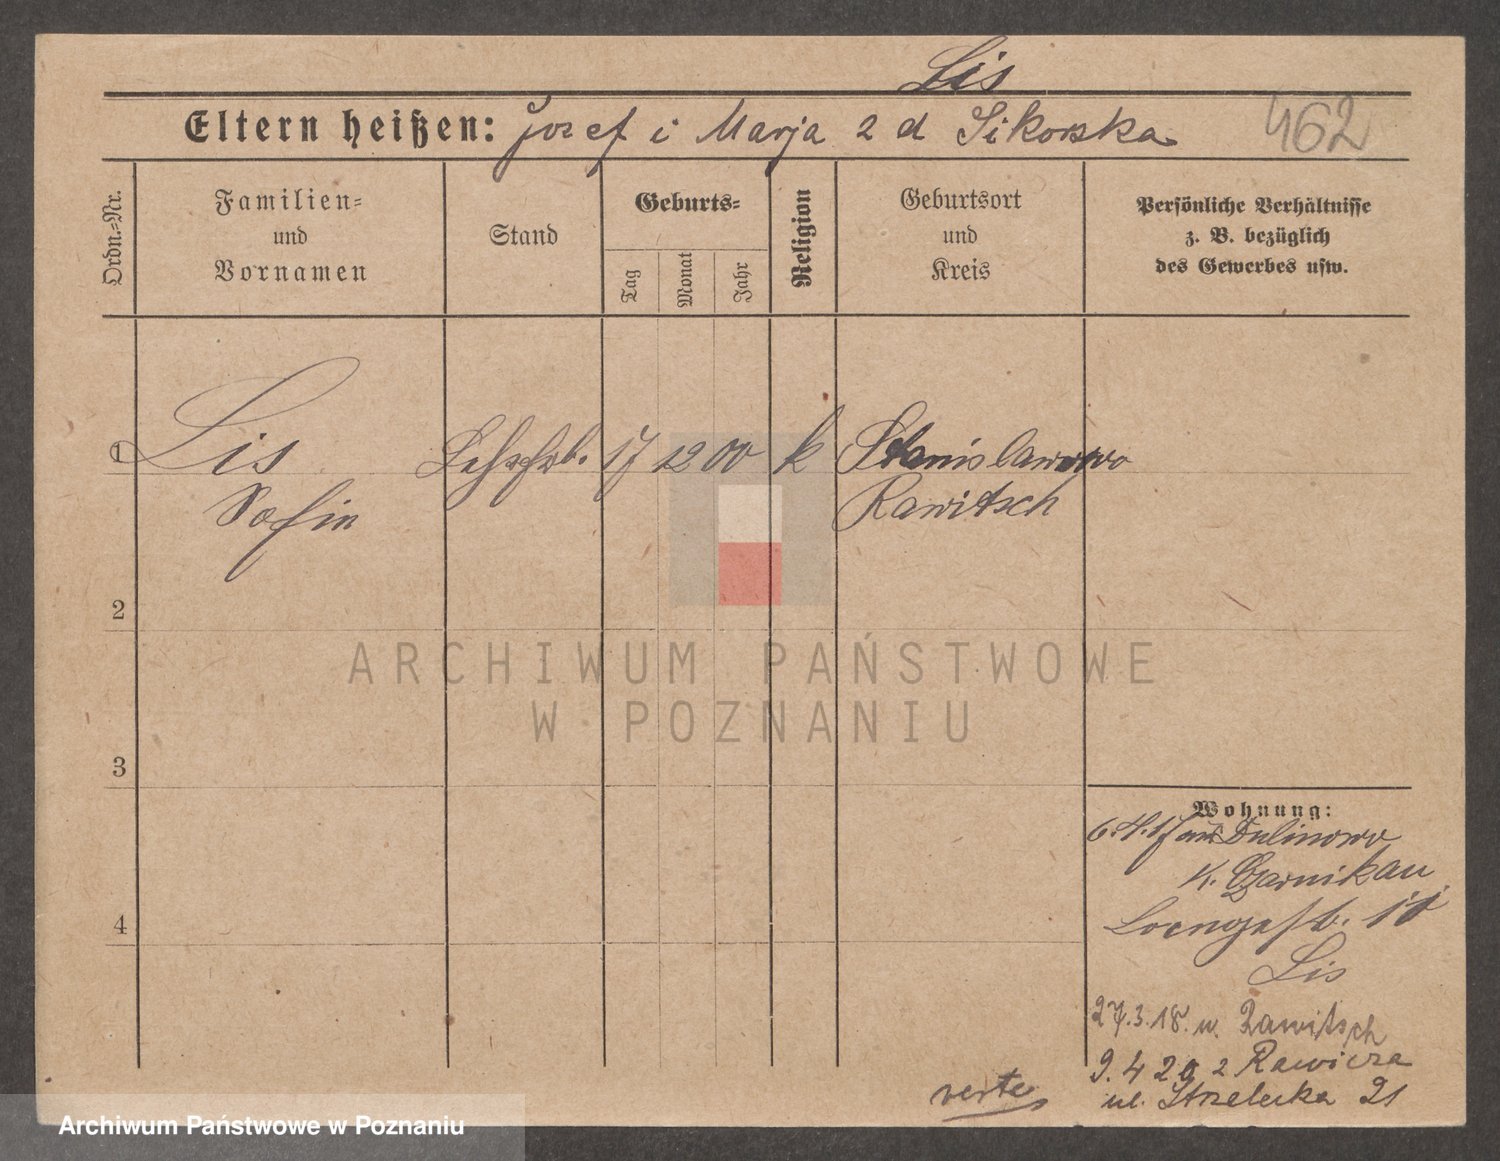 Lis
Eltern heißen: Jozef i Marja z d Sikorska
462
Ordn.-Nr.
Familien-
und
Vornamen
Stand
Geburts-
Tag
Monat
Jahr
Religion
Geburtsort
und
Kreis
Persönliche Verhältnisse
z. B. bezüglich
des Gewerbes usw.
1 Lis 17 12 00 k Stanislawowo
Sofia Rawitsch
2
3
4
ARCHIWUM PAŃSTWOWE
W POZNANIU
Wohnung:
6.4.17 aus Dulinowo
K. Czarnikau
11
Lis
27.3.18. n. Rawitsch
9.4 20 z Rawicza
ul. Strzelecka 21
verte
Archiwum Państwowe w Poznaniu